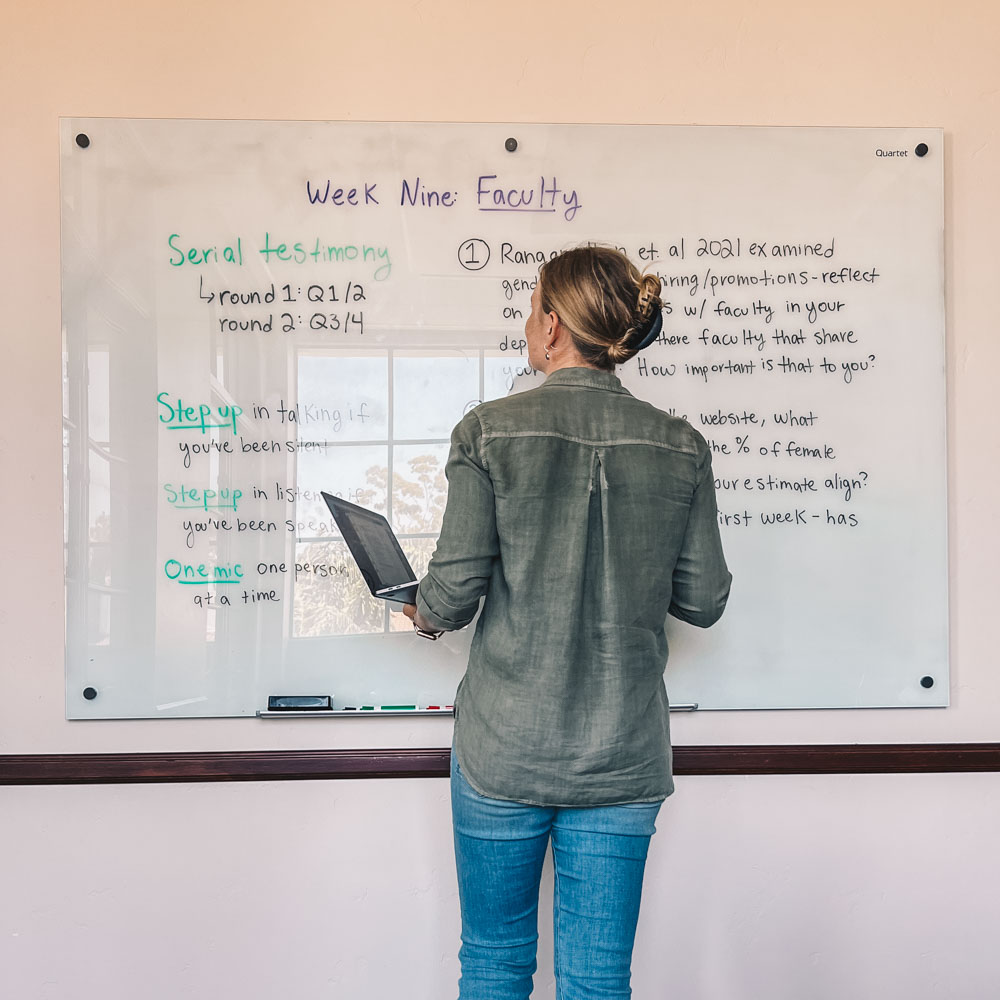 Quartet
Week Nine: Faculty
Serial testimony
↳ round 1: Q1/2
round 2: Q3/4
Step up in talking if
you've been silent
Step up in listening if
you've been speak
One mic one person
at a time
① et. al 2021 examined
hiring/promotions - reflect
on w/ faculty in your
there faculty that share
How important is that to you?
the website, what
the % of female
estimate align?
first week - has